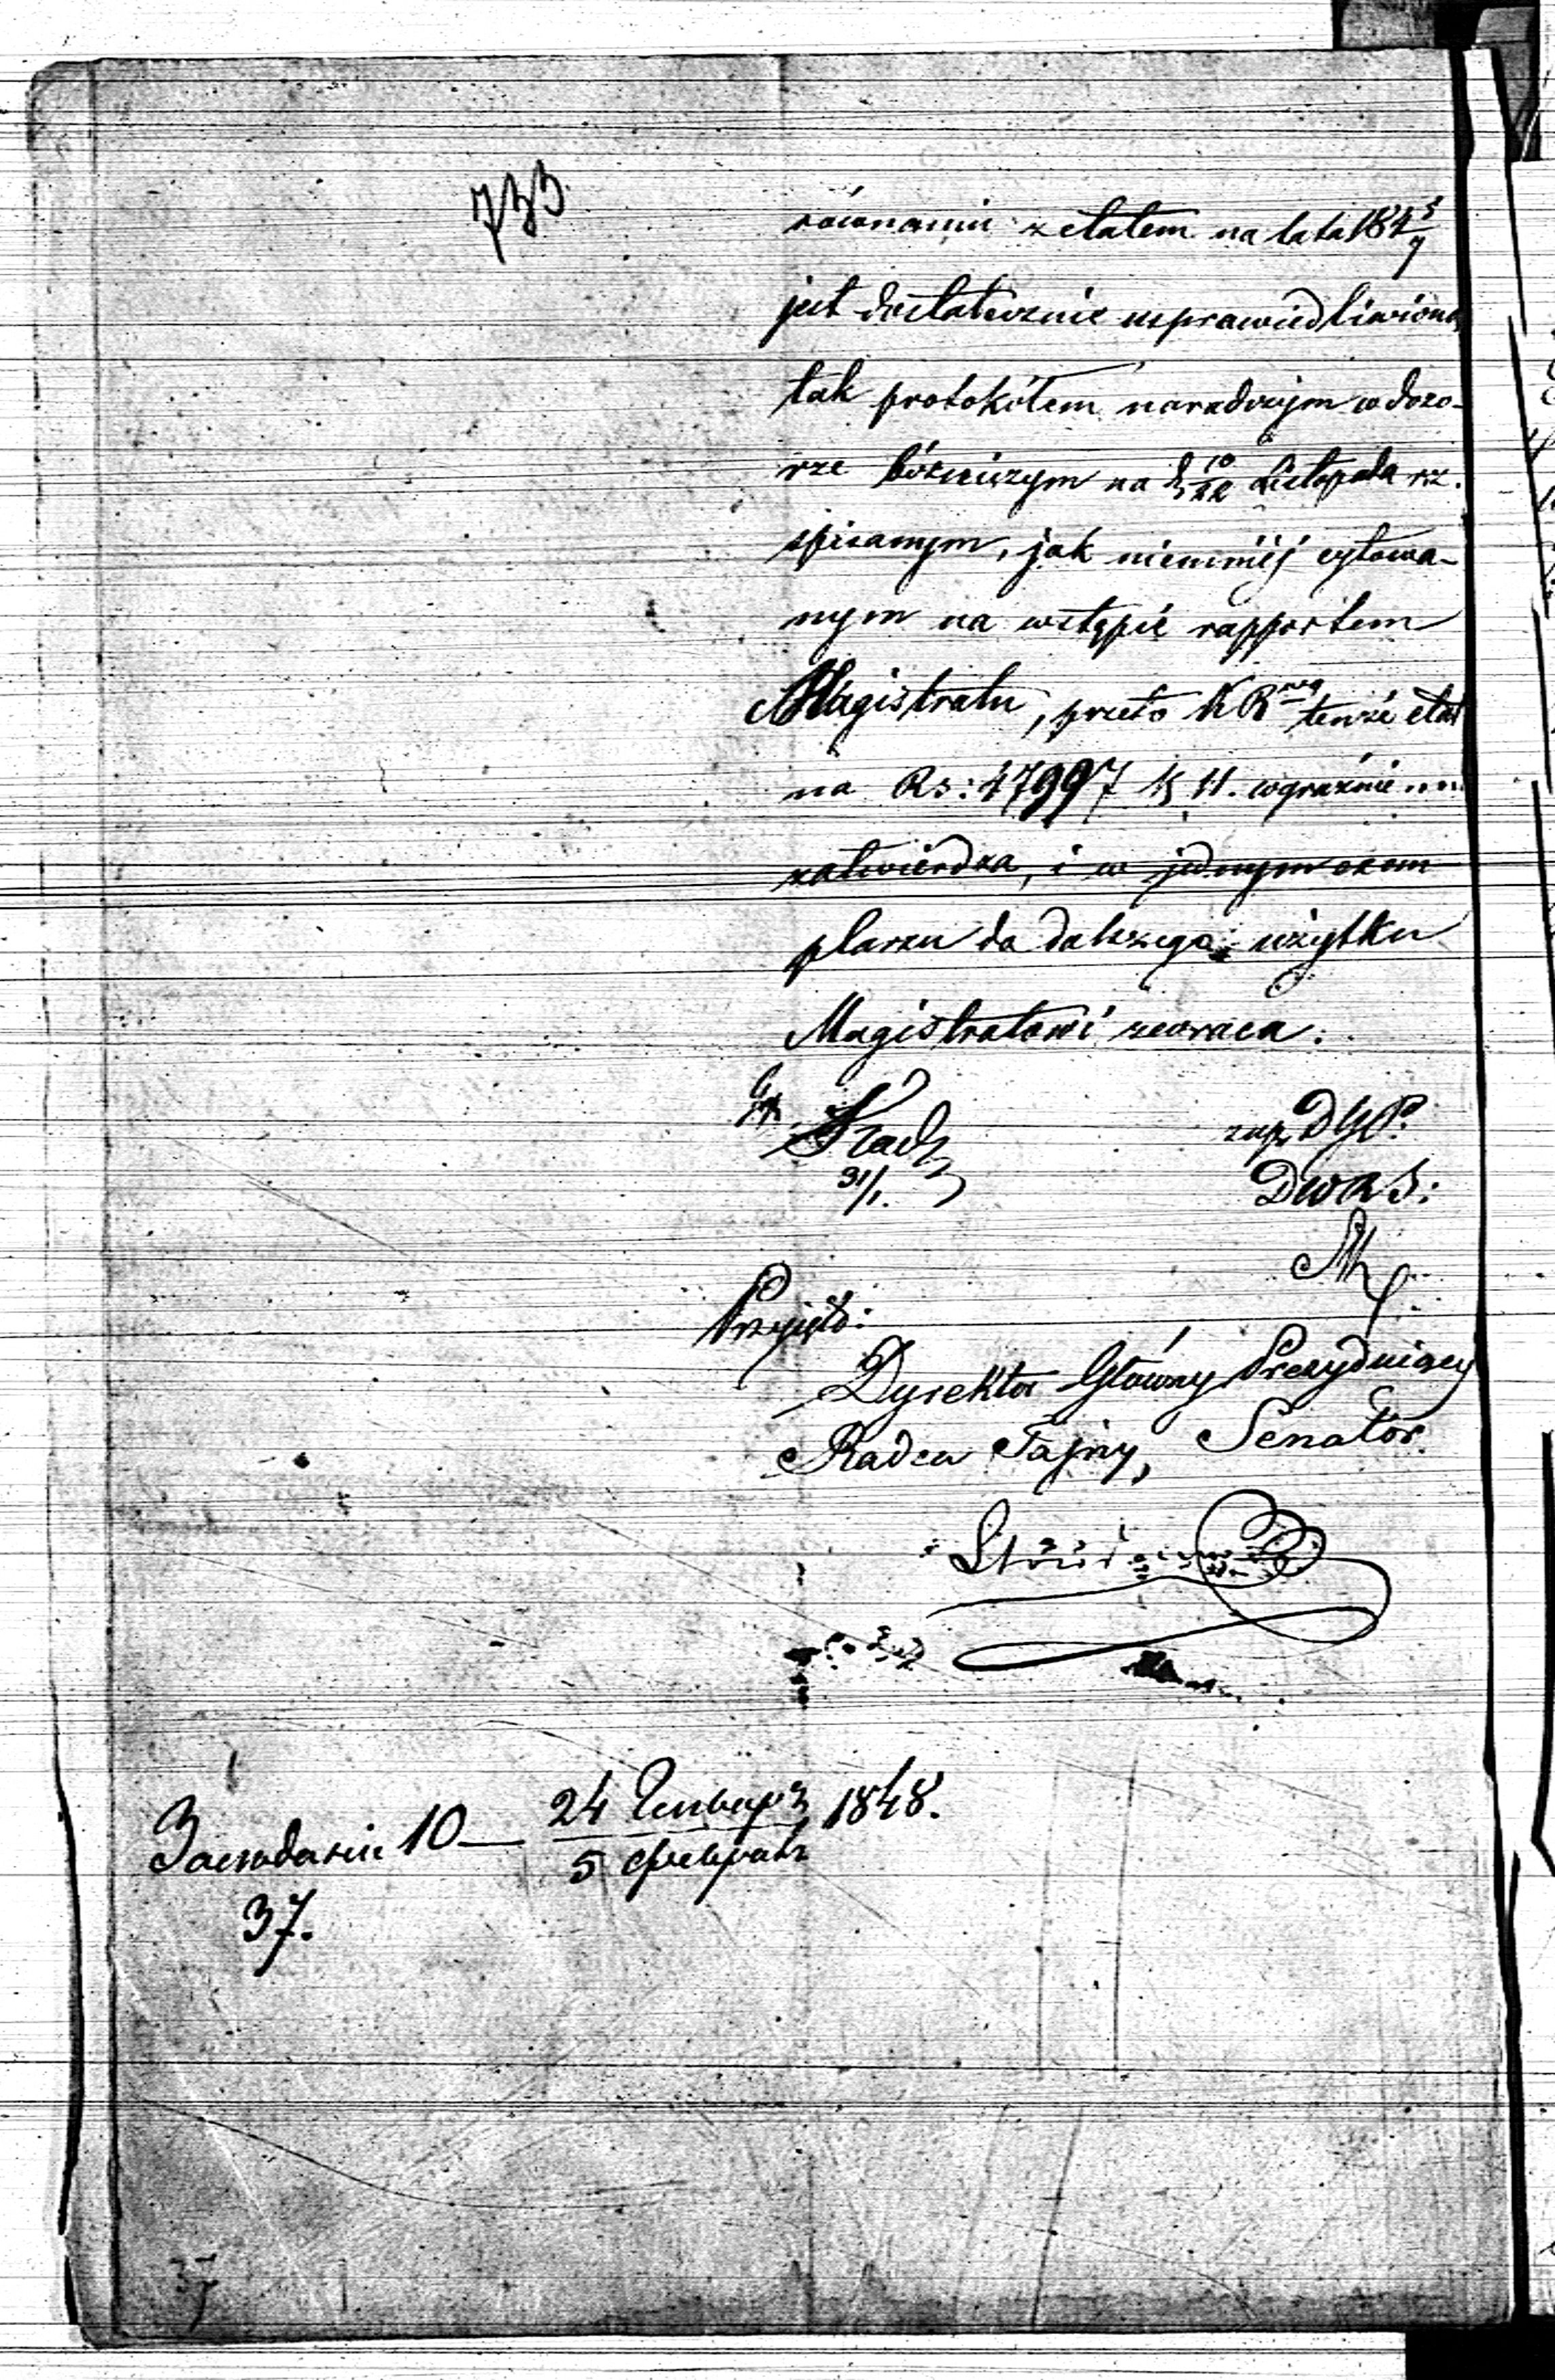 733
równaniu z etatem na lata 184 5/7
jest dostatecznie usprawiedliwioną
tak protokółem naradczym w dozo-
rze bóżniczym na d. 10/22 Listopada rz.
spisanym, jak niemniéj cytowa-
nym na wstępie rapportem
Magistratu, przeto KR tenże etat
na Rs: 47997 k 11. wyraźnie
zatwierdza, i w jednym exem
plarzu do dalszego użytku
Magistratowi zwraca.
31/1.
DGP.
Przyjęto:
Dyrektor Główny Prezydujący
Radca Tajny, Senator.
Заседание 10 — 24 Генваря / 5 Февраля 1848.
37.